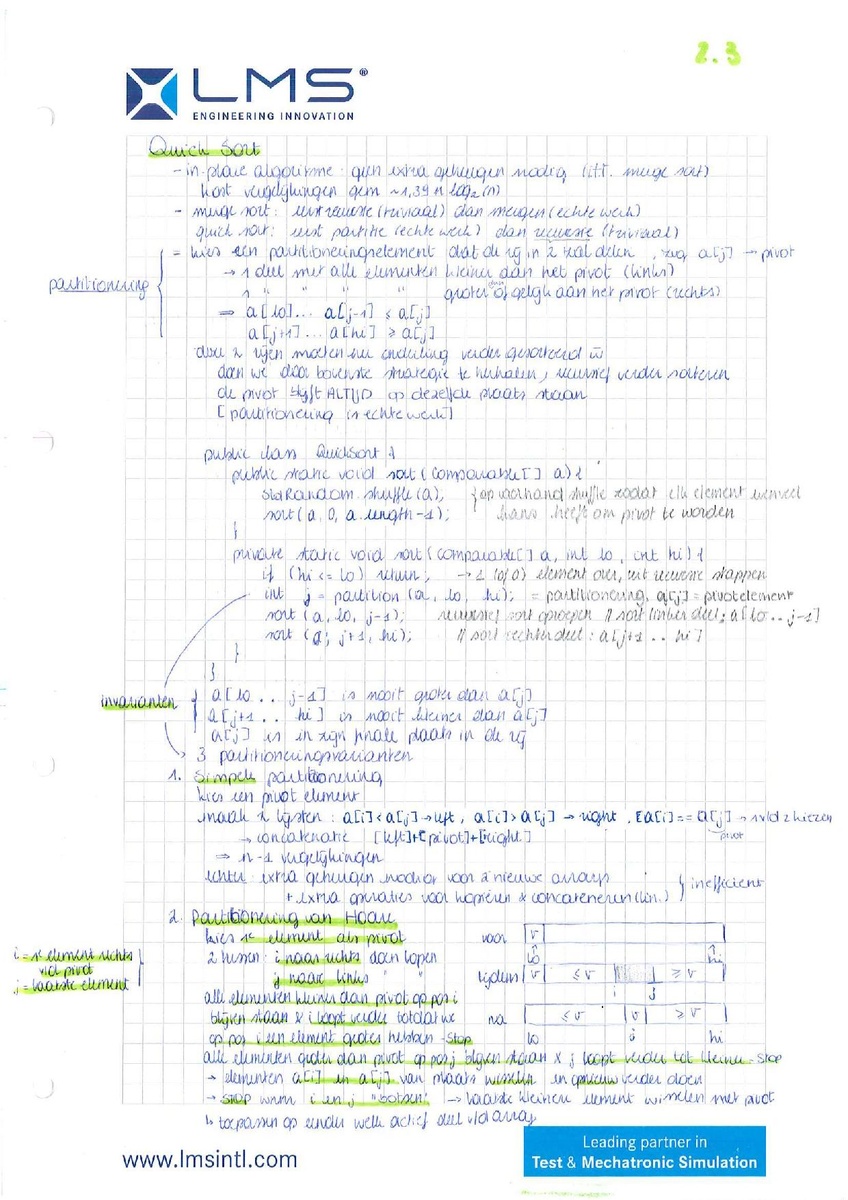 2.3
LMS®
ENGINEERING INNOVATION
Quick Sort
- in-place algoritme: geen extra geheugen nodig (i.t.t. merge sort)
kost vergelijkingen gem ~1,39 n log₂(n)
- merge sort: eerst recursie (triviaal) dan mergen (echte werk)
quick sort: eerst partitie (echte werk) dan recursie (triviaal)
partitionering
= kies een partitioneringselement dat de rij in 2 zal delen, zeg a[j] → pivot
→ 1 deel met alle elementen kleiner dan het pivot (links)
1 " " " " groter dan of gelijk aan het pivot (rechts)
⇒ a[lo]... a[j-1] ≤ a[j]
a[j+1]... a[hi] ≥ a[j]
deze 2 rijen moeten nu onderling verder gesorteerd w
door bovenste strategie te herhalen, recursief verder sorteren
de pivot blijft ALTIJD op dezelfde plaats staan
[partitionering is echte werk]
public class QuickSort {
public static void sort (Comparable[] a) {
StdRandom.shuffle(a); { op voorhand shuffle zodat elk element evenveel
sort(a, 0, a.length-1); kans heeft om pivot te worden
}
private static void sort (Comparable[] a, int lo, int hi) {
if (hi <= lo) return; → 1 (of 0) element over, uit recursie stappen
int j = partition (a, lo, hi); = partitionering, a[j] = pivotelement
sort (a, lo, j-1); recursief sort oproepen // sort linkerdeel: a[lo .. j-1]
sort (a, j+1, hi); // sort rechterdeel: a[j+1 .. hi]
}
}
invarianten
{ a[lo ... j-1] is nooit groter dan a[j]
a[j+1 ... hi] is nooit kleiner dan a[j]
a[j] is in zijn finale plaats in de rij
→ 3 partitioneringsvarianten
1. Simpele partitionering
kies een pivot element
maak 2 lijsten: a[i]<a[j]→left, a[i]>a[j] → right, [a[i]==a[j] → vld 2 kiezen
pivot
→ concatenatie [left]+[pivot]+[right]
⇒ n-1 vergelijkingen
echter: extra geheugen nodig voor 2 nieuwe arrays
+ extra operaties voor kopiëren & concateneren (lin.) } inefficient
2. Partitionering van Hoare
kies 1e element als pivot
voor v
lo hi
i = 1e element rechts
vld pivot
j = laatste element
2 lussen: i naar rechts doen lopen
j naar links " "
tijdens v ≤ v ≥ v
i j
alle elementen kleiner dan pivot op pos i
blijven staan & i loopt verder totdat we
na ≤ v v ≥ v
op pos i een element groter hebben - stop
lo j hi
alle elementen groter dan pivot op pos j blijven staan & j loopt verder tot kleiner - stop
→ elementen a[i] en a[j] van plaats wisselen en opnieuw verder doen
→ stop wnr i en j "botsen" → laatste kleinere element wisselen met pivot
↳ toepassen op eender welk actief deel v/d array
www.lmsintl.com
Leading partner in
Test & Mechatronic Simulation